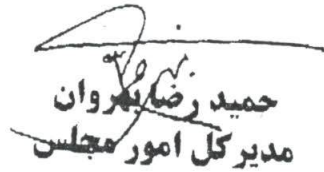 حمید رضا بهروان
مدیر کل امور مجلس